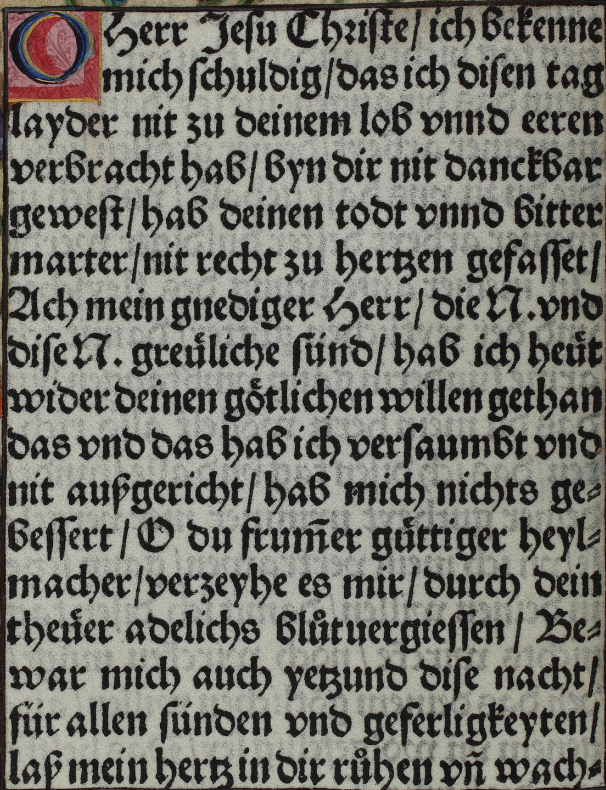 O Herr Jesu Christe/ ich bekenne
mich schuldig/das ich disen tag
layder nit zu deinem lob vnnd eeren
verbracht hab/ byn dir nit danckbar
gewest/ hab deinen todt vnnd bitter
marter/nit recht zu hertzen gefasset/
Ach mein gnediger Herr/ die N.vnd
dise N. greuͤliche sünd/ hab ich heuͤt
wider deinen goͤtlichen willen gethan
das vnd das hab ich versaumbt vnd
nit außgericht/ hab mich nichts ge⸗
bessert/ O du frum̃er guͤttiger heyl⸗
macher/verzeyhe es mir/ durch dein
theuͤer adelichs bluͦtuergiessen / Be⸗
war mich auch yetzund dise nacht/
für allen sünden vnd geferligkeyten/
laß mein hertz in dir ruͦhen vñ wach⸗